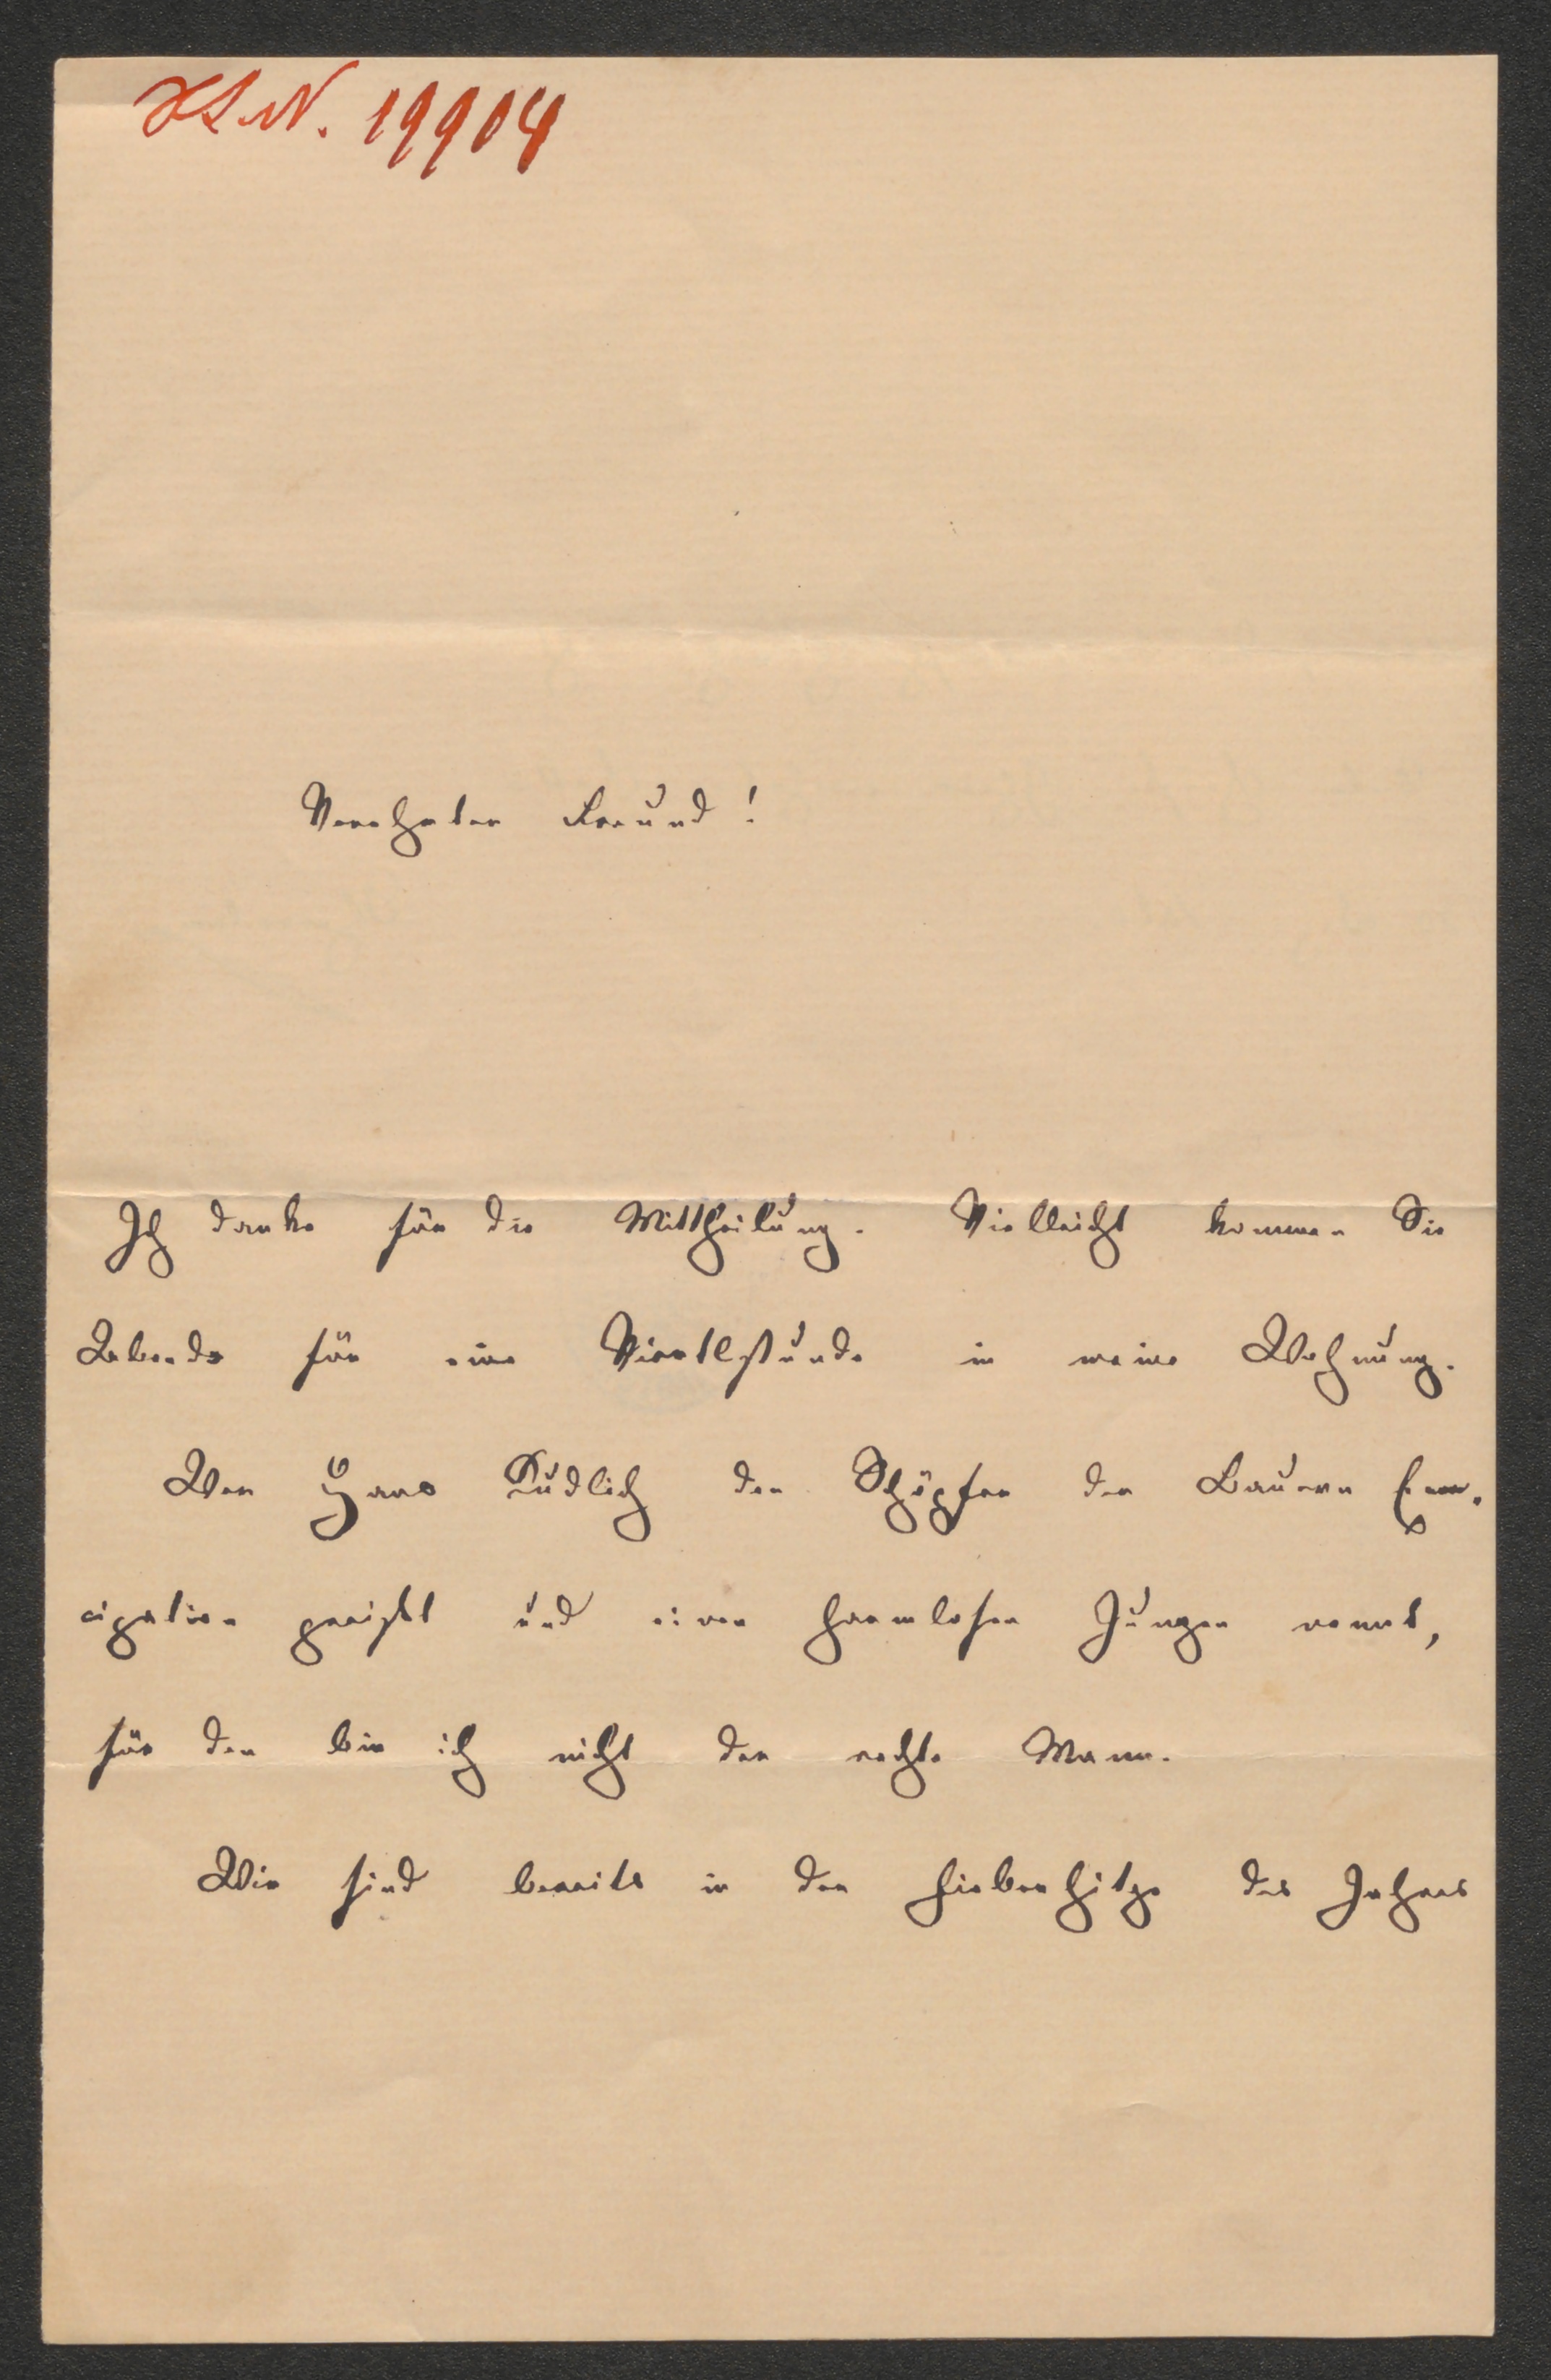 H.I.N. 19904
Verehrter Freund!
Ich danke für die Mittheilung. Vielleicht kommen Sie
Abends für eine Viertelstunde in meine Wohnung.
Wer Hans Kudlich den Schöpfer der Bauern Eman-
cipation preißt und einen harmlosen Jungen nennt,
für den bin ich nicht der rechte Mann.
Wir sind bereits in der Fieberhitze des Jahres